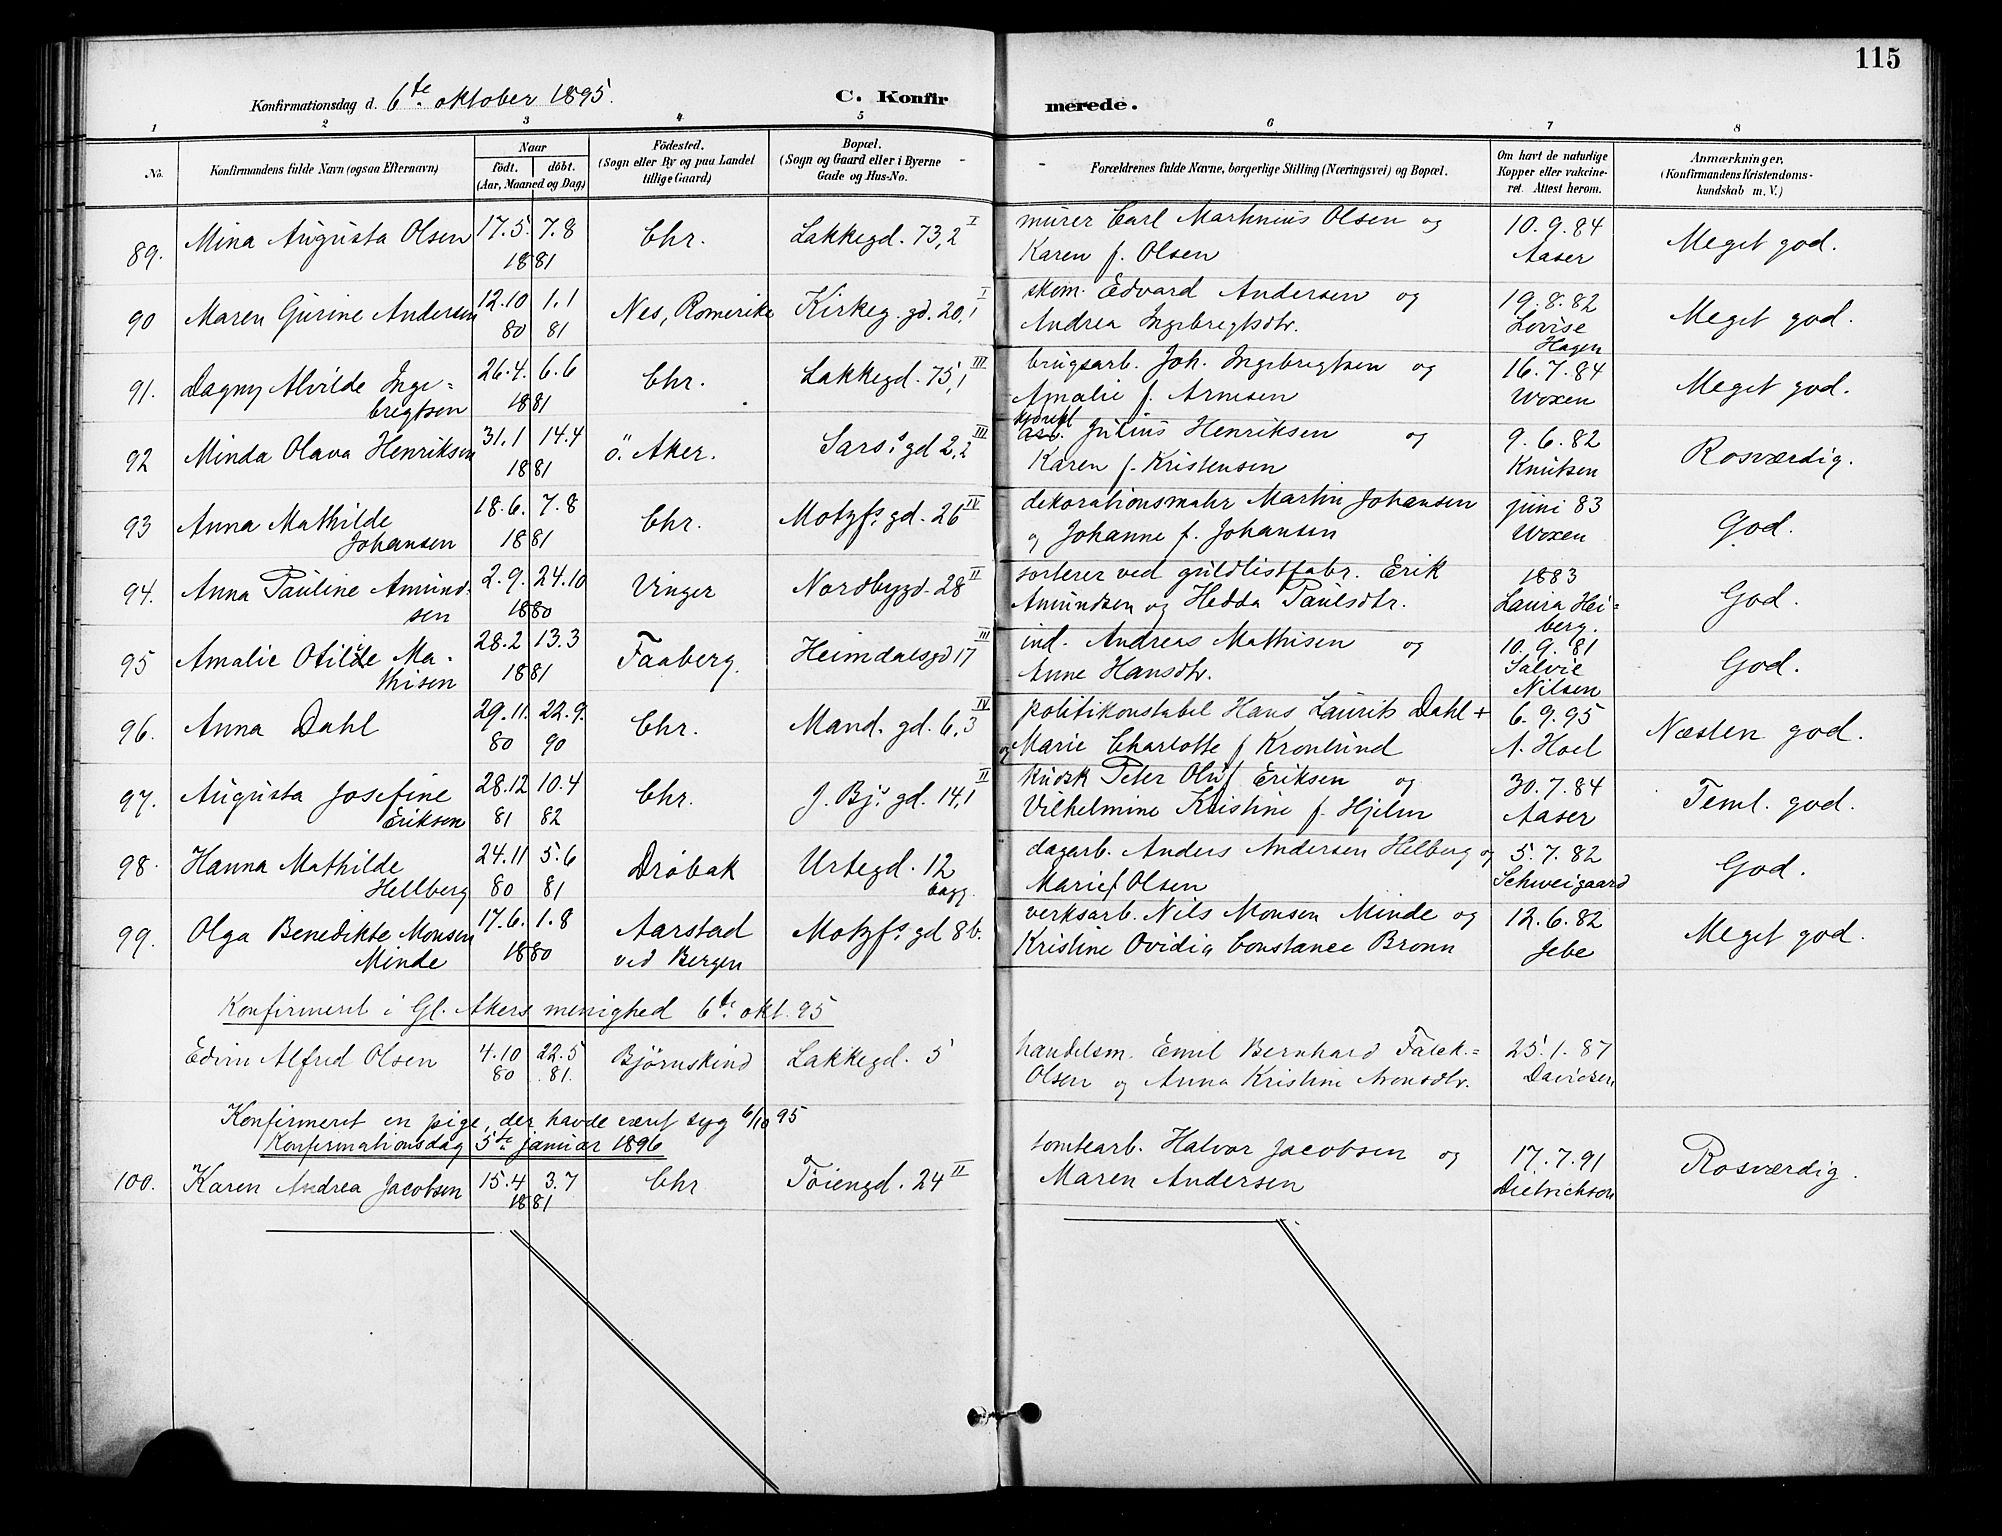 115
Konfirmationsdag d. 6te oktober 1895.
C. Konfirmerede.
1 2 3 4 5 6 7 8
No.
Konfirmandens fulde Navn (ogsaa Efternavn)
Naar
födt. döbt.
(Aar, Maaned og Dag)
Födested.
(Sogn eller By og paa Landet
tillige Gaard)
Bopæl.
(Sogn og Gaard eller i Byerne
Gade og Hus-No.
Forældrenes fulde Navne, borgerlige Stilling (Næringsvei) og Bopæl.
Om havt de naturlige
Kopper eller vakcine-
ret. Attest herom.
Anmærkninger,
(Konfirmandens Kristendoms-
kundskab m. V.)
89. Mina Augusta Olsen 17.5. 7.8 Chr. Lakkegd. 73,2 I murer Carl Martinius Olsen og 10.9.84 Meget god.
1881 Karen f. Olsen Aaser
90 Maren Gurine Andersen 12.10 1.1 Nes, Romerike Kirkeg. gd. 20,1 I skom. Edvard Andersen og 19.8.82 Meget god.
80 81 Andrea Ingebregtsdtr. Lovise
Hagen
91. Dagny Alvilde Inge= 26.4. 6.6 Chr. Lakkegd. 75,1 III brugsarb. Joh. Ingebregtsen og 16.7.84 Meget god.
bregtsen 1881 Amalie f. Arnesen Woxen
92 Minda Olava Henriksen 31.1 14.4 ö. Aker. Sars's gd 2,2 III arb. Julius Henriksen og 9.6.82 Rosværdig.
1881 Karen f. Kristensen Knutsen
93 Anna Mathilde 18.6. 7.8 Chr. Motzfs. gd. 26 IV dekorationsmaler Martin Johansen juni 83 God.
Johansen 1881 og Johanne f. Johansen Woxen
94. Anna Pauline Amund- 2.9. 24.10 Vinger Nordbygd. 28 II sorterer ved guldlistfabr. Erik 1883 God.
sen 1880 Amundsen og Hedda Paulsdtr. Laura Hei-
berg.
95 Amalie Otilde Ma- 28.2 13.3 Faaberg. Heimdalsgd 17 III ind. Andreas Mathisen og 10.9.81 God.
thisen 1881 Anne Hansdtr. Salvie
Nilsen
96. Anna Dahl 29.11. 22.9. Chr. Mand. gd. 6,3 IV politikonstabel Hans Laurits Dahl + 6.9.95 Næsten god.
80 90 og Marie Charlotte f Kronlund A. Hoel
97. Augusta Josefine 28.12 10.4 Chr. J. Bjs. gd. 14,1 II kudsk Peter Oluf Eriksen og 30.7.84 Teml. god.
Eriksen 81 82 Vilhelmine Kristine f. Hjelm Aaser
98. Hanna Mathilde 24.11 5.6 Dröbak Urtegd. 12 dagarb. Anders Andersen Helberg og 5.7.82 God.
Hellberg 80 81 bagg. Marie f Olsen Schweigaard
99. Olga Benedikte Monsen 17.6. 1.8 Aarstad Motzfs. gd 8b. verksarb. Nils Monsen Minde og 12.6.82 Meget god.
Minde 1880 ved Bergen Kristine Ovidia Constance Bronn Jebe
Konfirmeret i Gl. Akers menighed 6te. okt. 95
Edvin Alfred Olsen 4.10 22.5 Björnskind Lakkegd. 5 handelsm. Emil Bernhard Falck-= 25.1.87
80 81. Olsen og Anna Kristine Aronsdtr. Davidsen
Konfirmeret en pige, der havde været syg 6/10 95
Konfirmationsdag 5te januar 1896
100. Karen Andrea Jacobsen 15.4 3.7 Chr Töiengd. 24 II tomtearb. Halvor Jacobsen og 17.7.91 Rosværdig.
1881 Maren Andersen Dietrichson